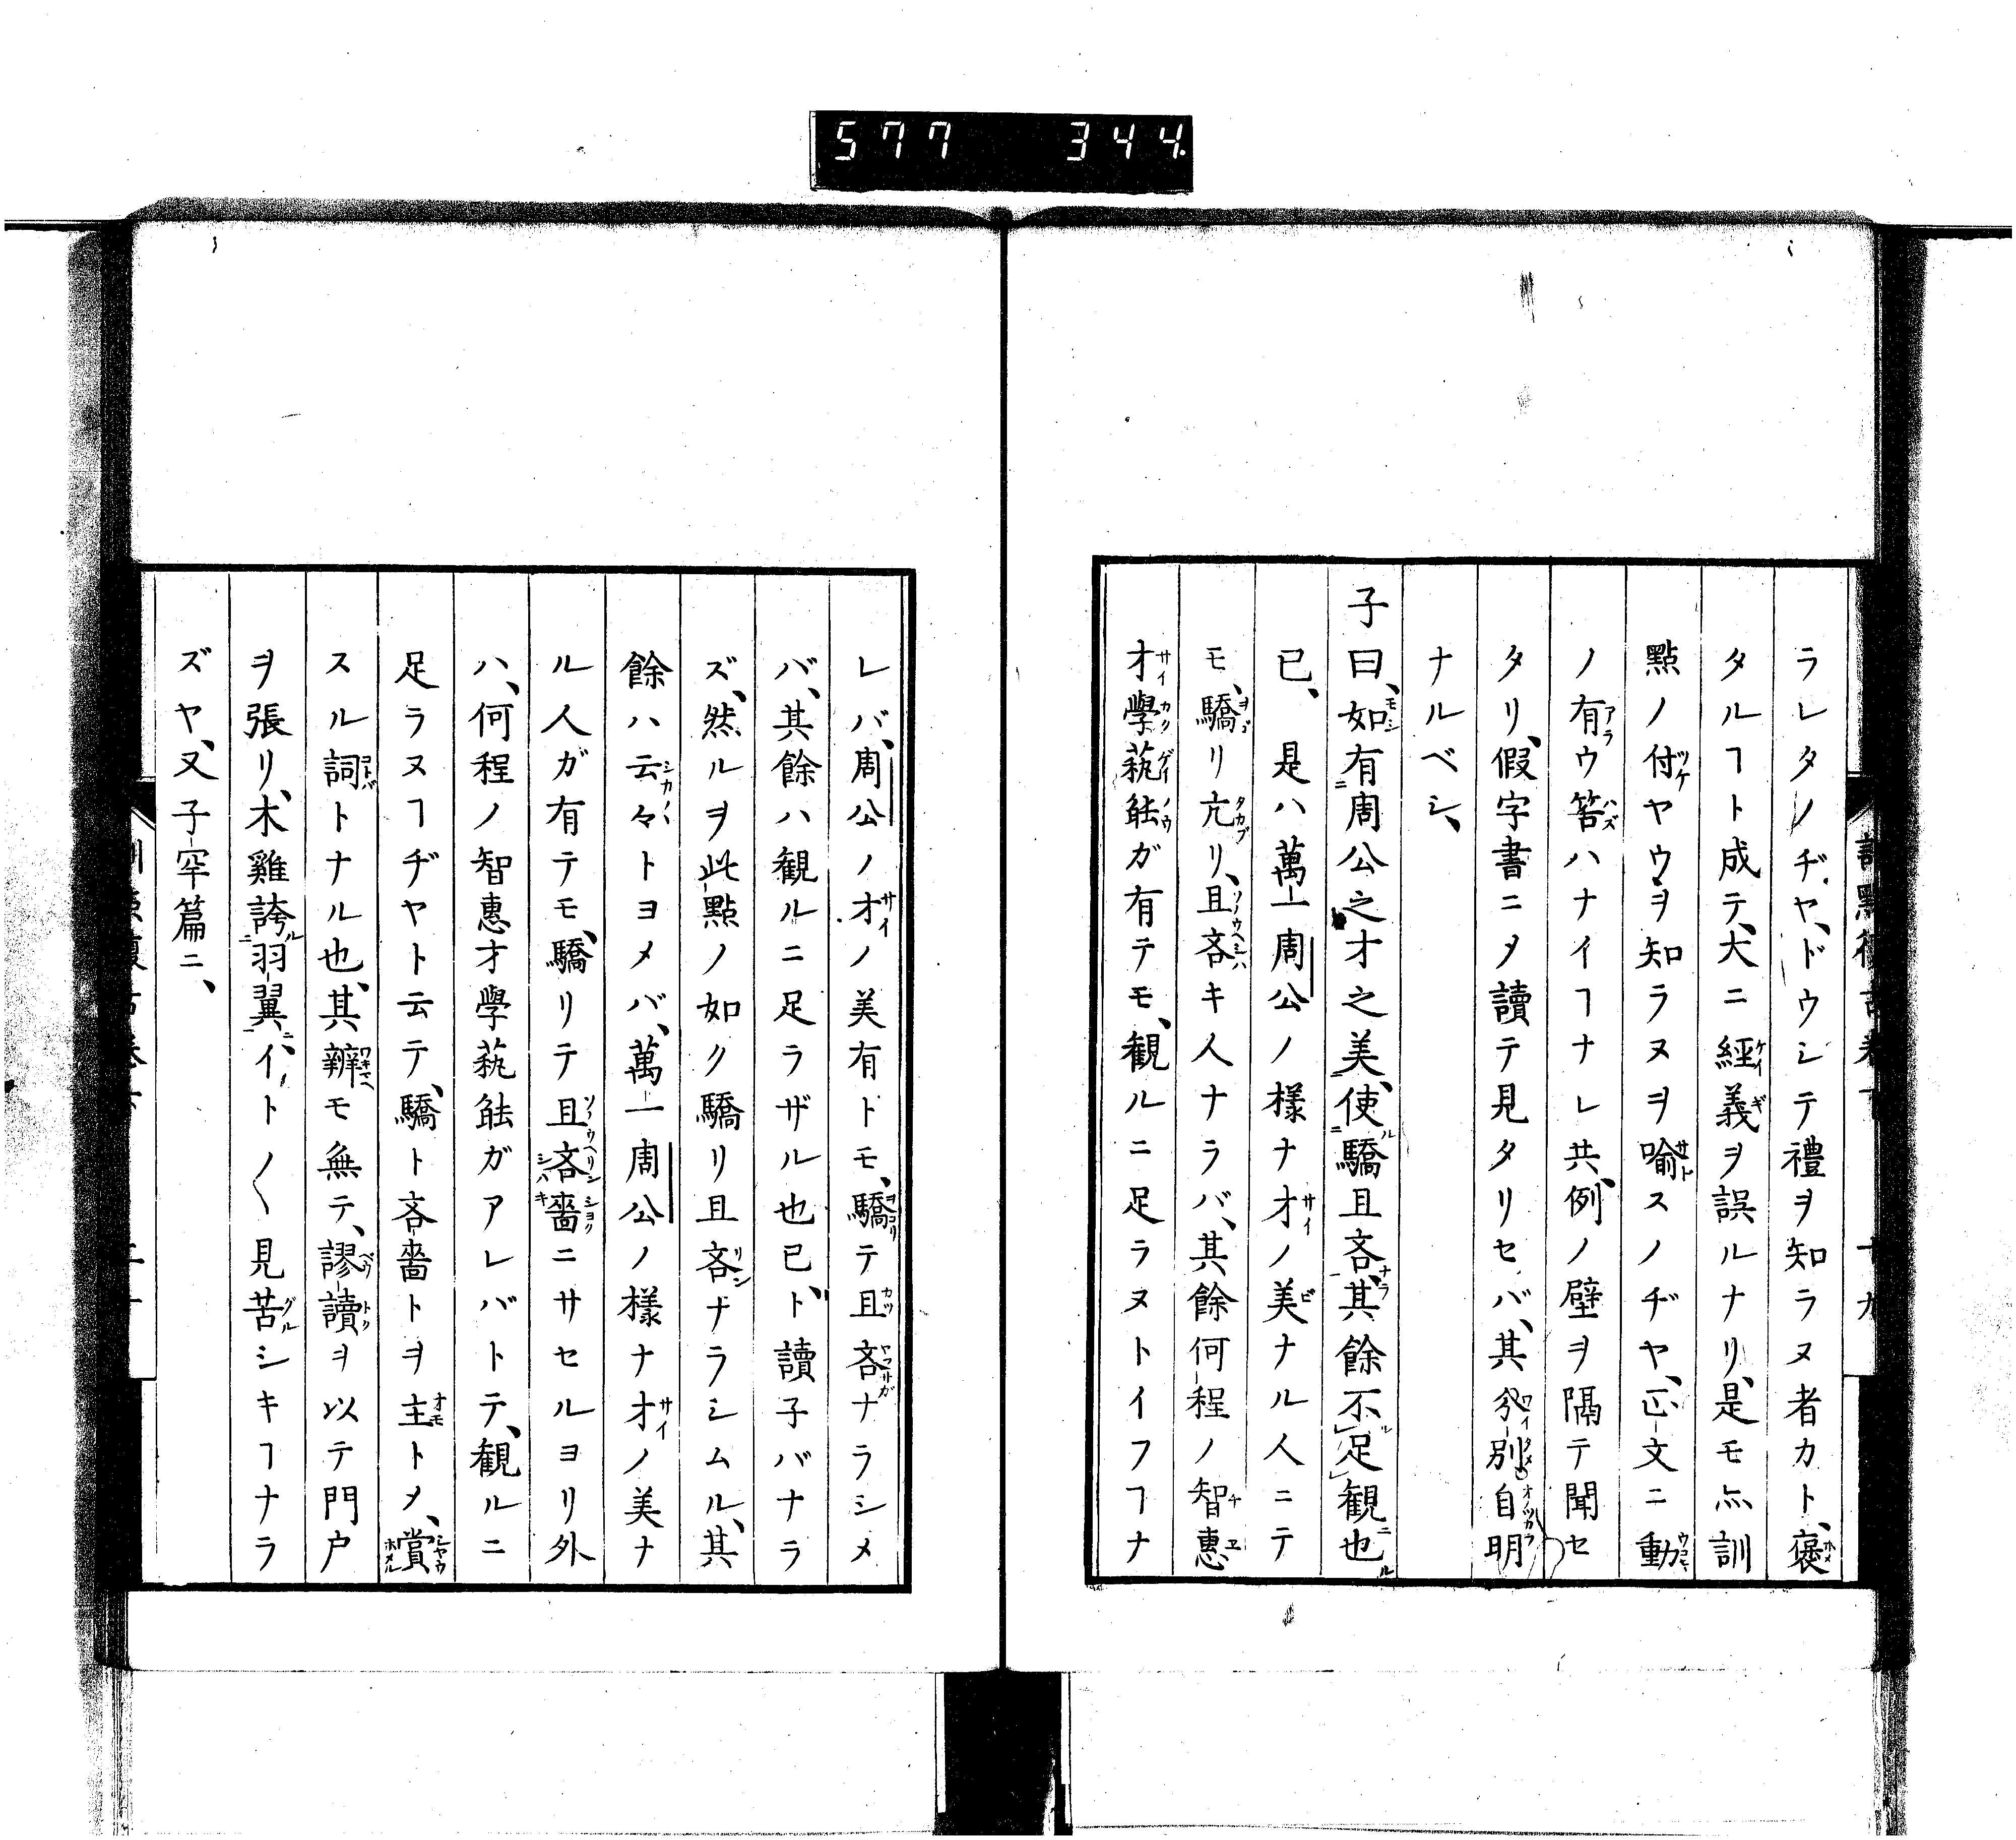 577 344
ラレタノヂヤ、ドウシテ禮ヲ知ラヌ者カト、褒
タルヿト成テ、大ニ經義ヲ誤ルナリ、是モ亦訓
點ノ付ヤウヲ知ラヌヲ喩スノヂヤ、正文ニ動
ノ有ウ筈ハナイヿナレ共、例ノ壁ヲ隔テ聞セ
タリ、假字書ニメ讀テ見タリセバ、其分別自明
ナルベシ、
子曰、如有周公之才之美、使驕且吝、其餘不足觀也
已、 是ハ萬一周公ノ樣ナ才ノ美ナル人ニテ
モ、驕リ亢リ、且吝キ人ナラバ、其餘何程ノ智惠
才學藝能ガ有テモ、觀ルニ足ラヌトイフヿナ
レバ、周公ノ才ノ美有トモ、驕テ且吝ナラシメ
バ、其餘ハ觀ルニ足ラザル也已、ト讀子バナラ
ズ、然ルヲ此點ノ如ク驕リ且吝ナラシムル、其
餘ハ云々トヨメバ、萬一周公ノ樣ナ才ノ美ナ
ル人ガ有テモ、驕リテ且吝嗇ニサセルヨリ外
ハ、何程ノ智惠才學藝能ガアレバトテ、觀ルニ
足ラヌヿヂヤト云テ、驕ト吝嗇トヲ主トメ、賞
スル詞トナル也、其辨モ無テ、謬讀ヲ以テ門戸
ヲ張リ、木雞誇羽翼ニ、イトノ〱見苦シキヿナラ
ズヤ、又子罕篇ニ、